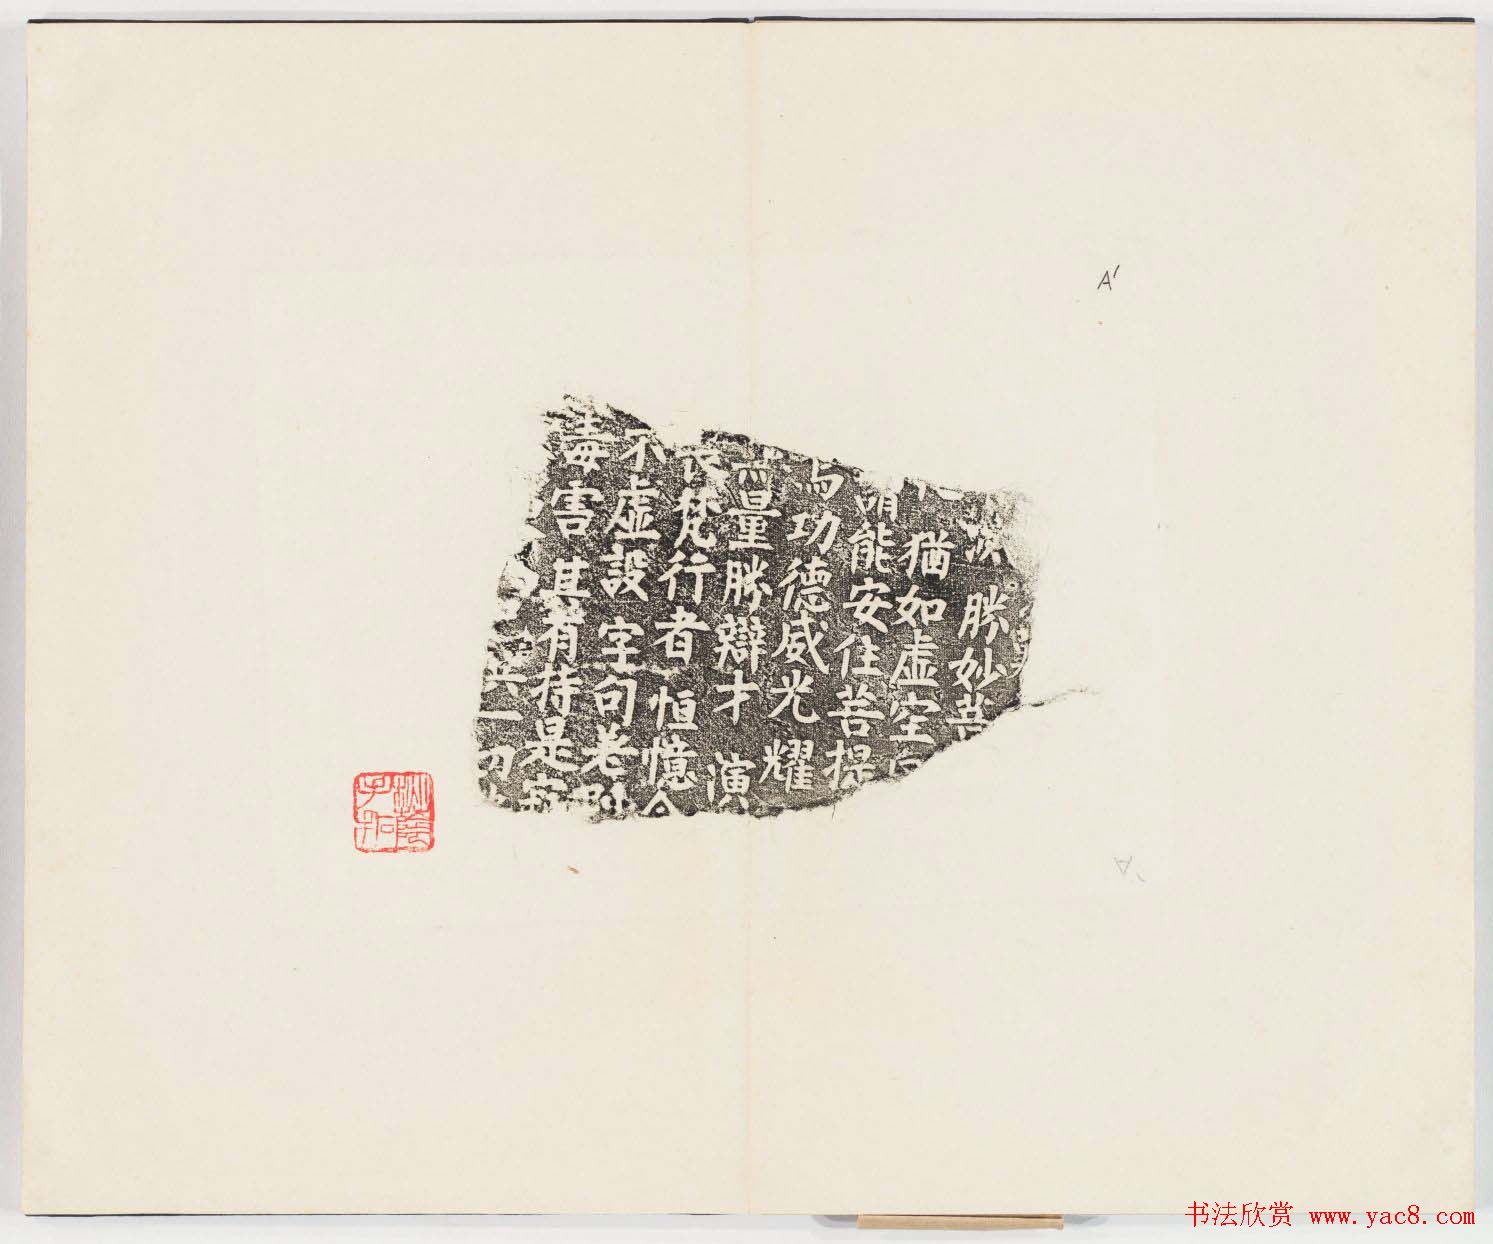 A'
勝妙菩
猶如虛空
能安住菩提
功德威光耀
量勝辯才 演
梵行者 恒憶念
不虛設 字句差別
毒害 其有持是
一切
书法欣赏 www.yac8.com